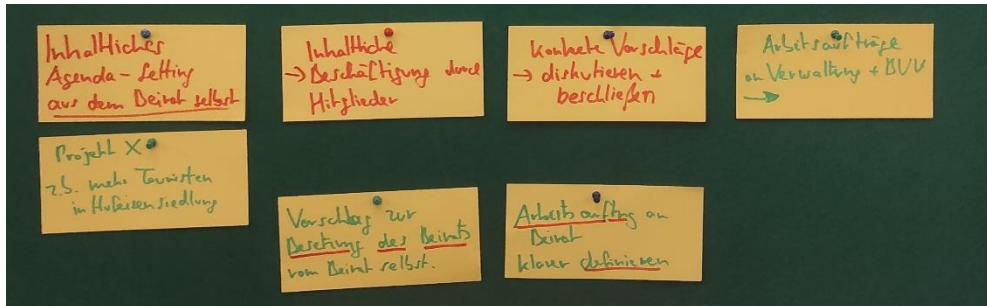 Inhaltliches
Agenda-Setting
aus dem Beirat selbst
Inhaltliche
→ Beschäftigung durch
Mitglieder
Konkrete Vorschläge
→ diskutieren +
beschließen
Arbeitsaufträge
an Verwaltung + BVV
→
Projekt X
z.B. mehr Touristen
in Hufeisensiedlung
Vorschlag zur
Besetzung des Beirats
vom Beirat selbst.
Arbeitsauftrag an
Beirat
klarer definieren